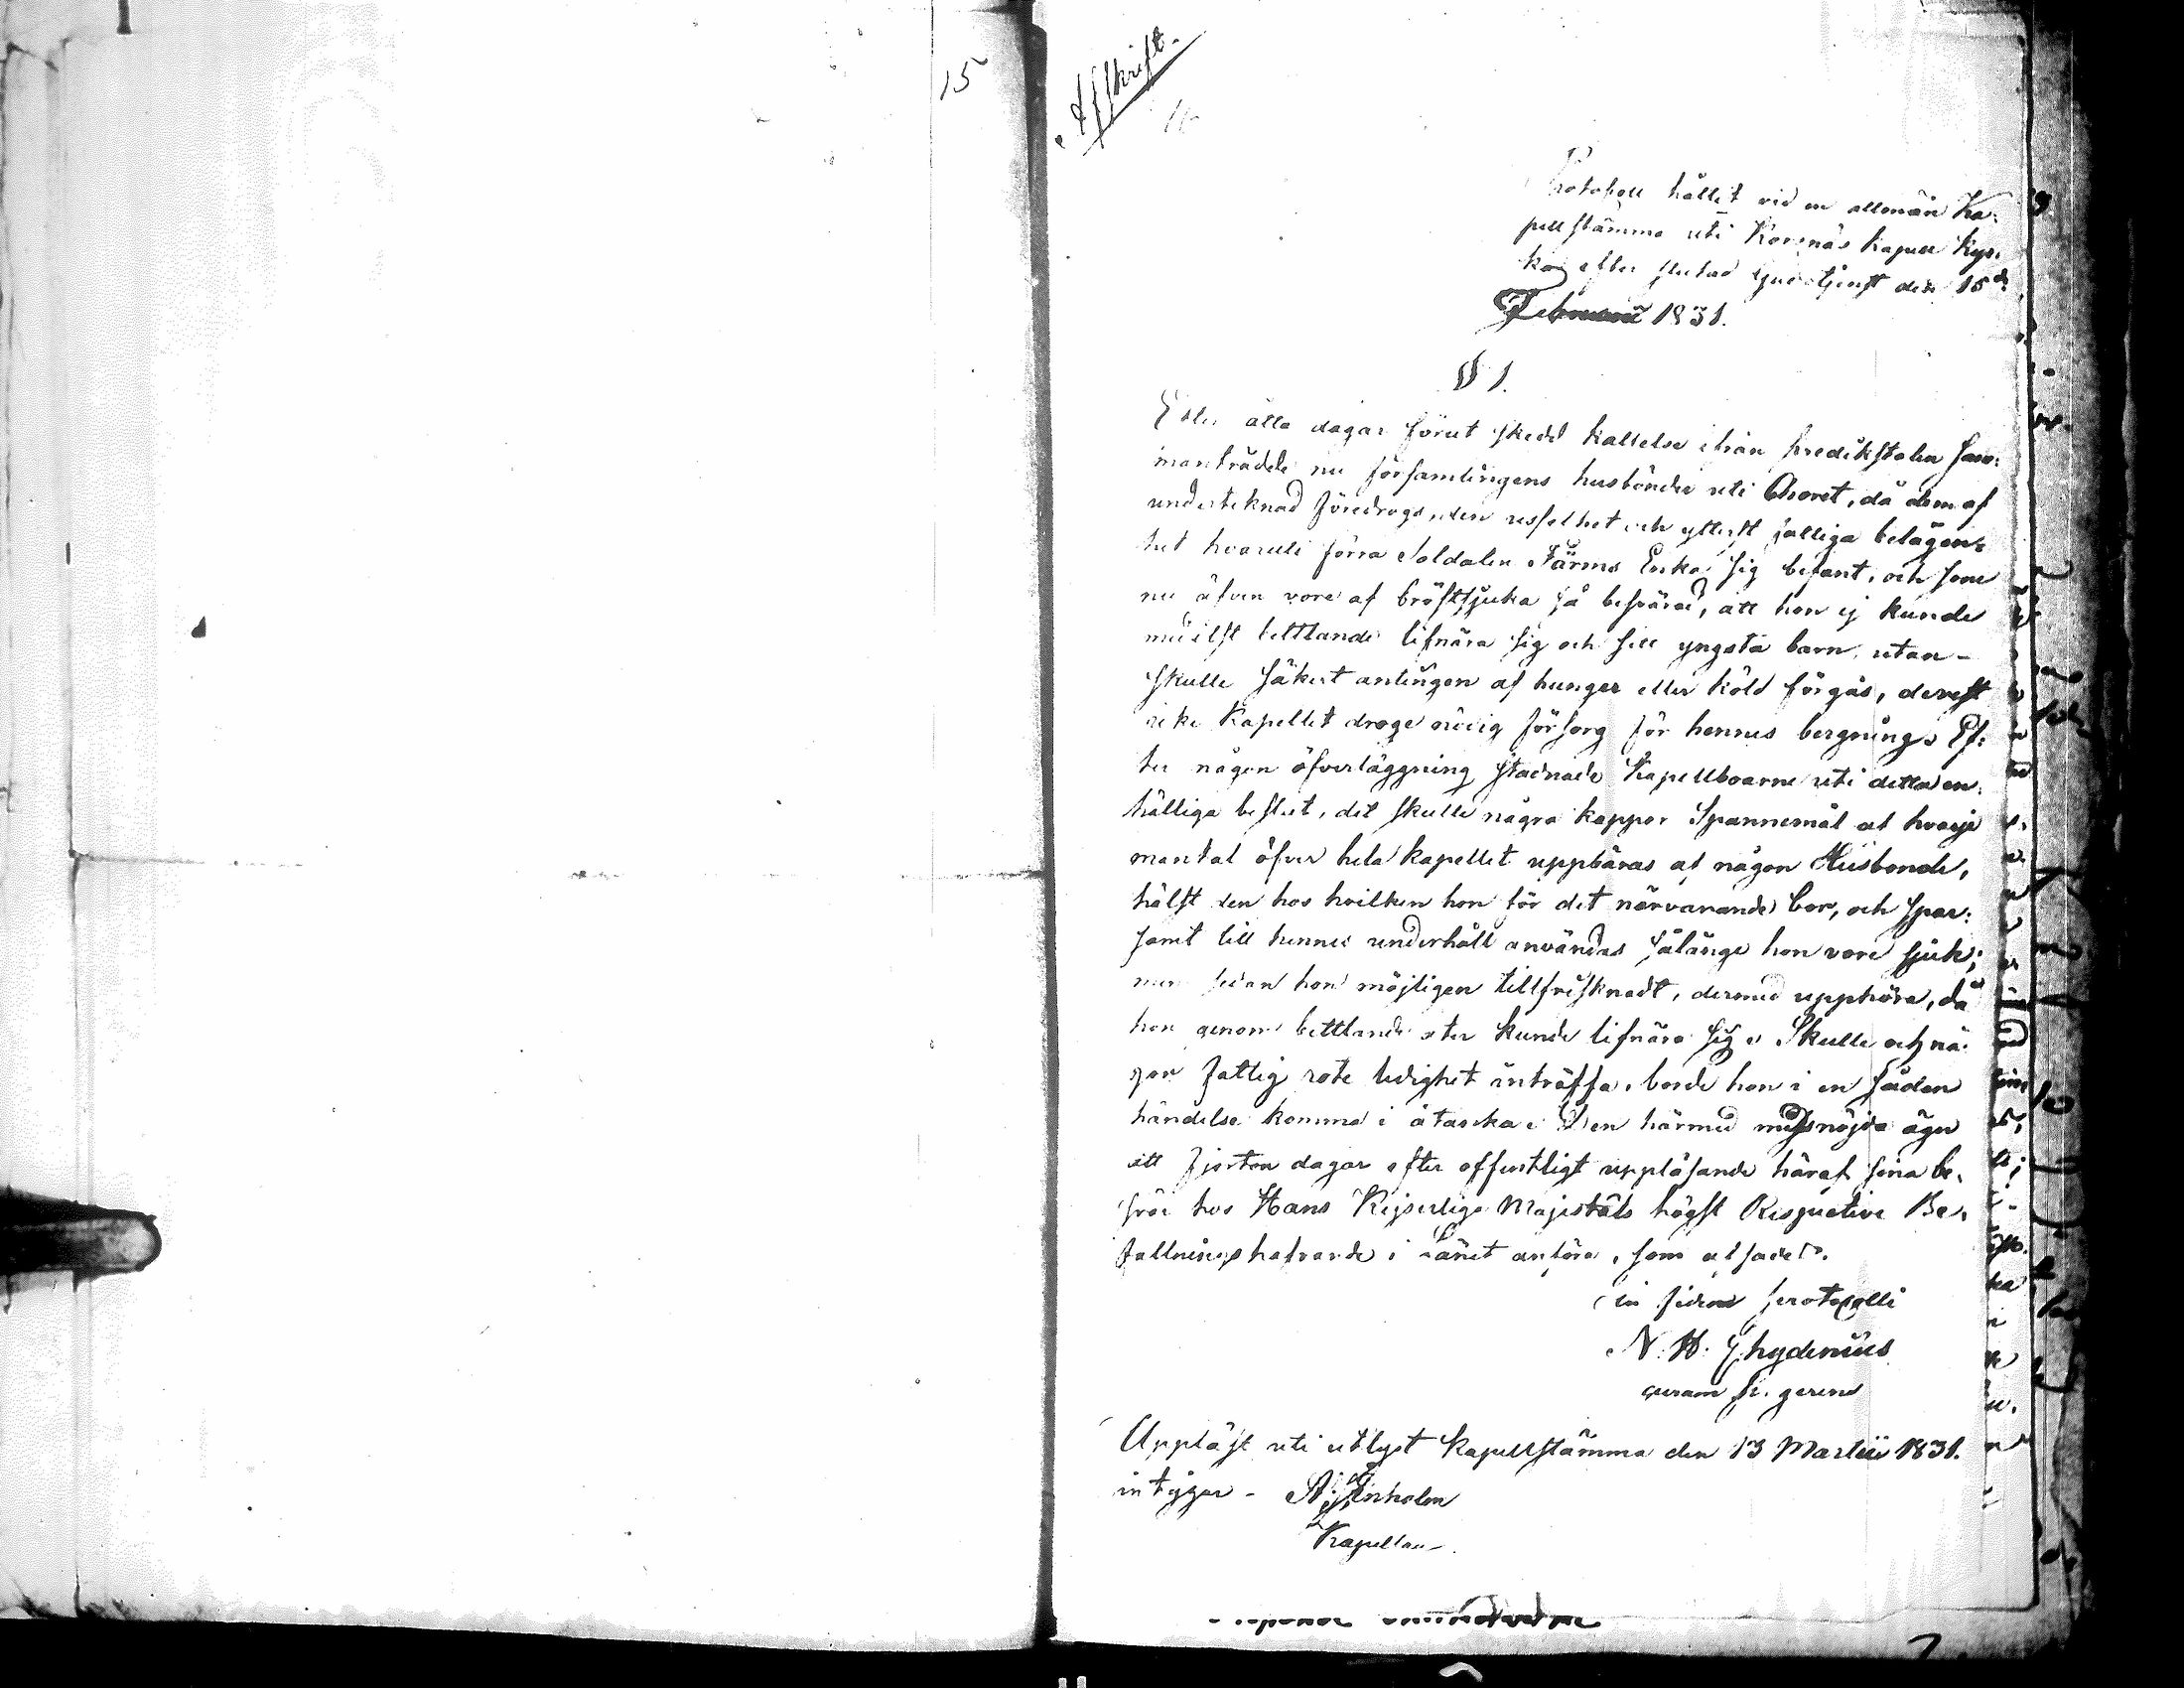 15
Afskrift.
16
Protokoll hållit vid en allmän Ka:
pellstämma uti Korsnäs Kapell Kyr:
ka efter slutad Gudstjenst den 15de
Februarii 1831.
§ 1.
Efter åtta dagar förut skedd kallelse ifrån predikstolen sam:
manträdde nu församlingens husbönder uti Choret, då dem af
underteknad föredrogs, den usselhet och ytterst fattiga belägen:
het hvaruti förra Soldaten Färms Enka sig befant, och som
nu äfven vore af bröstsjuka så besvärad, att hon ej kunde
medelst bettlande lifnära sig och sitt yngsta barn, utan
skulle säkert antingen af hunger eller köld förgås, derest
icke Kapellet droge nödig försorg för hennes bergning. Ef:
ter någon öfverläggning stadnade Kapellboarne uti detta en:
hälliga beslut, det skulle några kappor Spannemål af hvarje
mantal öfver hela kapellet uppbäras af någon Husbonde,
hälst den hos hvilken hon för det närvarande bor, och spar:
samt till hennes underhåll användas sålänge hon vore sjuk;
men sedan hon möjligen tillfrisknadt, dermed upphöra, då
hon genom bettlande åter kunde lifnära sig. Skulle och nå:
gon fattig rote ledighet inträffa, borde hon i en sådan
händelse komma i åtanka. Den härmed missnöjda äger
att fjorton dagar efter offentligt uppläsande häraf sina be:
svär hos Hans Kejserliga Majestäts högst Respective Be:
fallningshafvande i Länet anföra, som utsades.
in fidem protocolli
N. H. Chydenius
curam p. gerens
Uppläst uti utlyst Kapellstämma den 13 Martii 1831.
intygar - A.
Kapellan